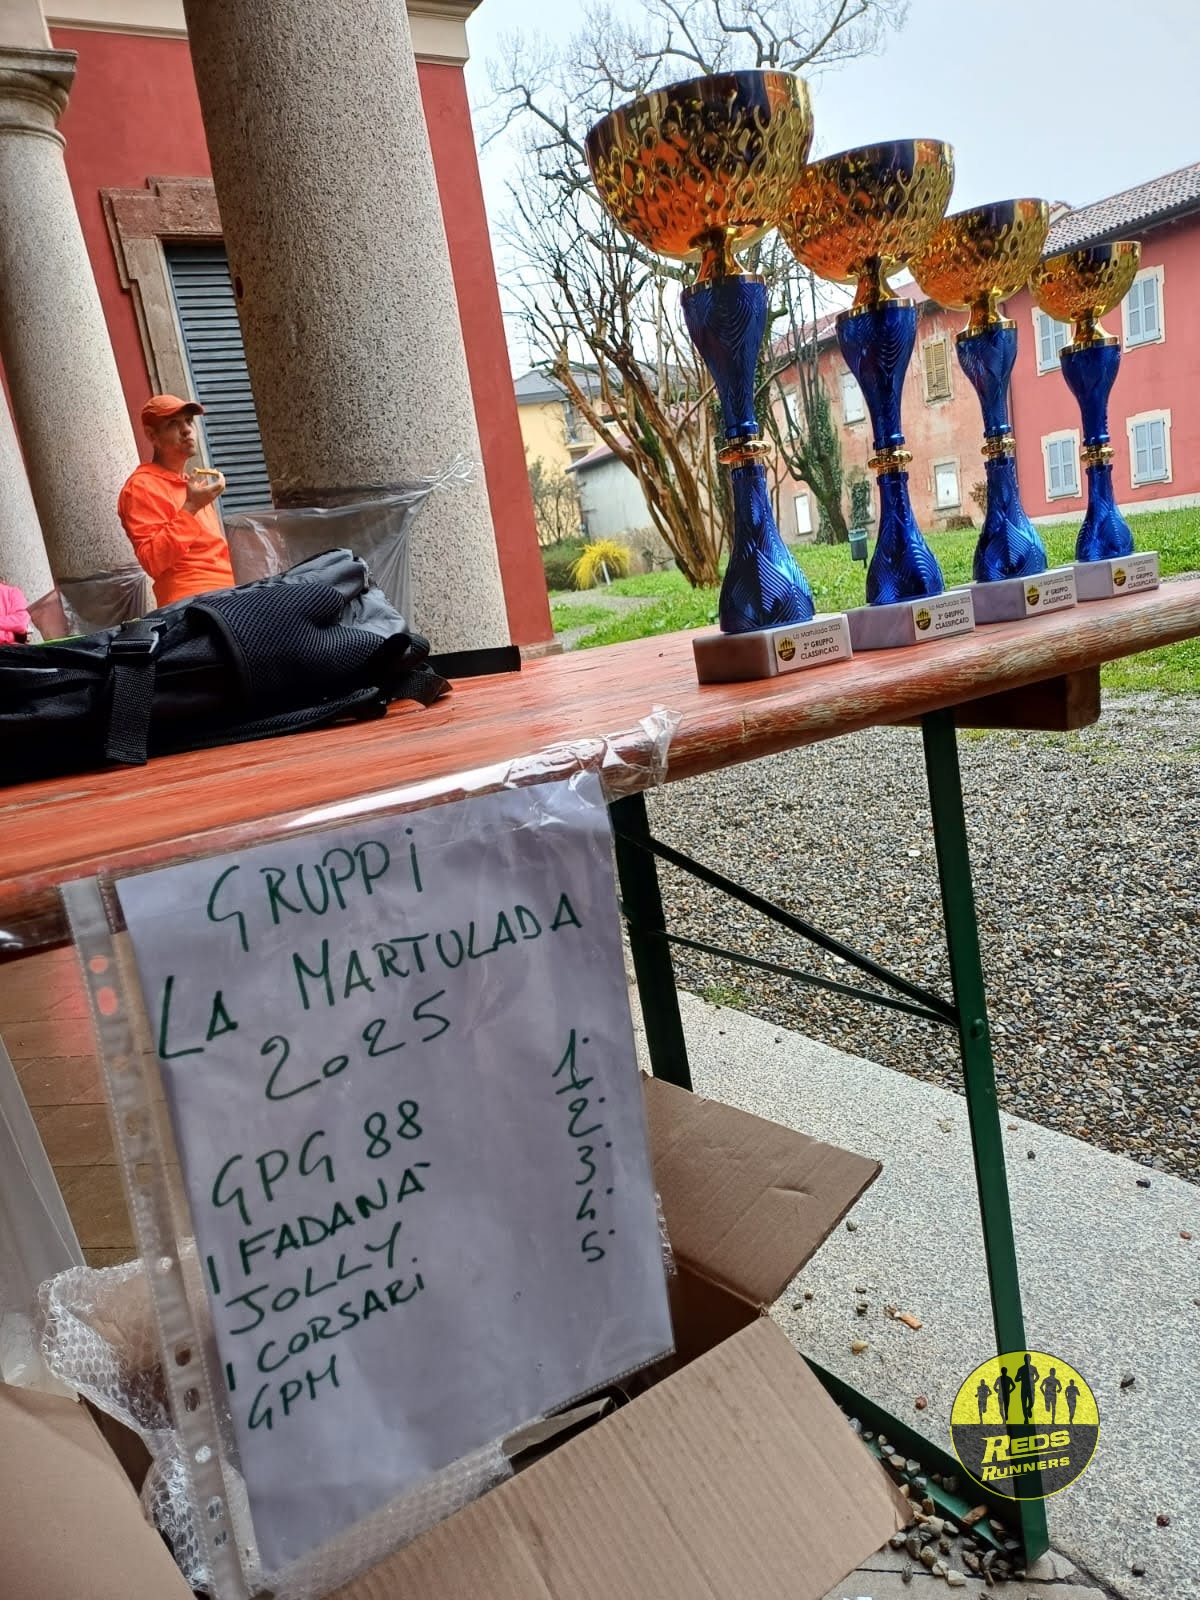 La Martulada 2025
2° GRUPPO
CLASSIFICATO
La Martulada 2025
3° GRUPPO
CLASSIFICATO
La Martulada 2025
4° GRUPPO
CLASSIFICATO
La Martulada 2025
5° GRUPPO
CLASSIFICATO
GRUPPi
LA MARTULADA
2025
GPG 88 1.
I FADANÀ 2.
JOLLY. 3.
I CORSARi 4.
GPM 5.
REDS
RUNNERS